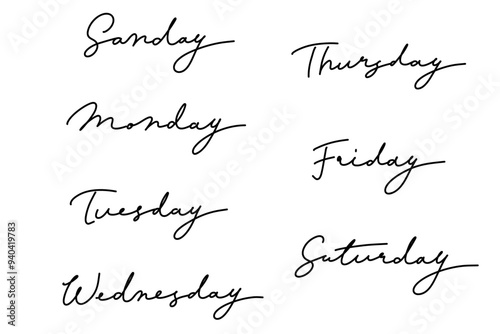 Sanday
Monday
Tuesday
Wednesday
Thursday
Friday
Saturday
Adobe Stock | #940419783